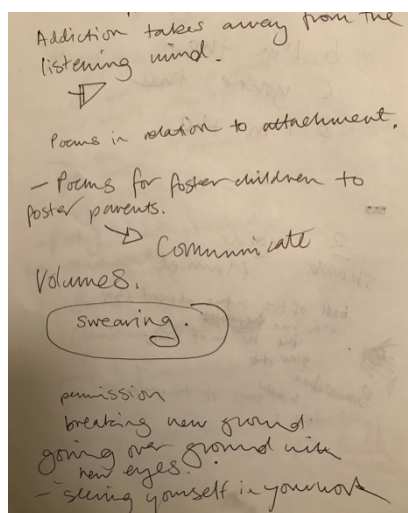 Addiction takes away from the
listening mind.
Poems in relation to attachment.
- Poems for foster children to
foster parents.
Communicate
Volumes.
swearing.
permission
breaking new ground
going over ground with
new eyes.
- seeing yourself in your work